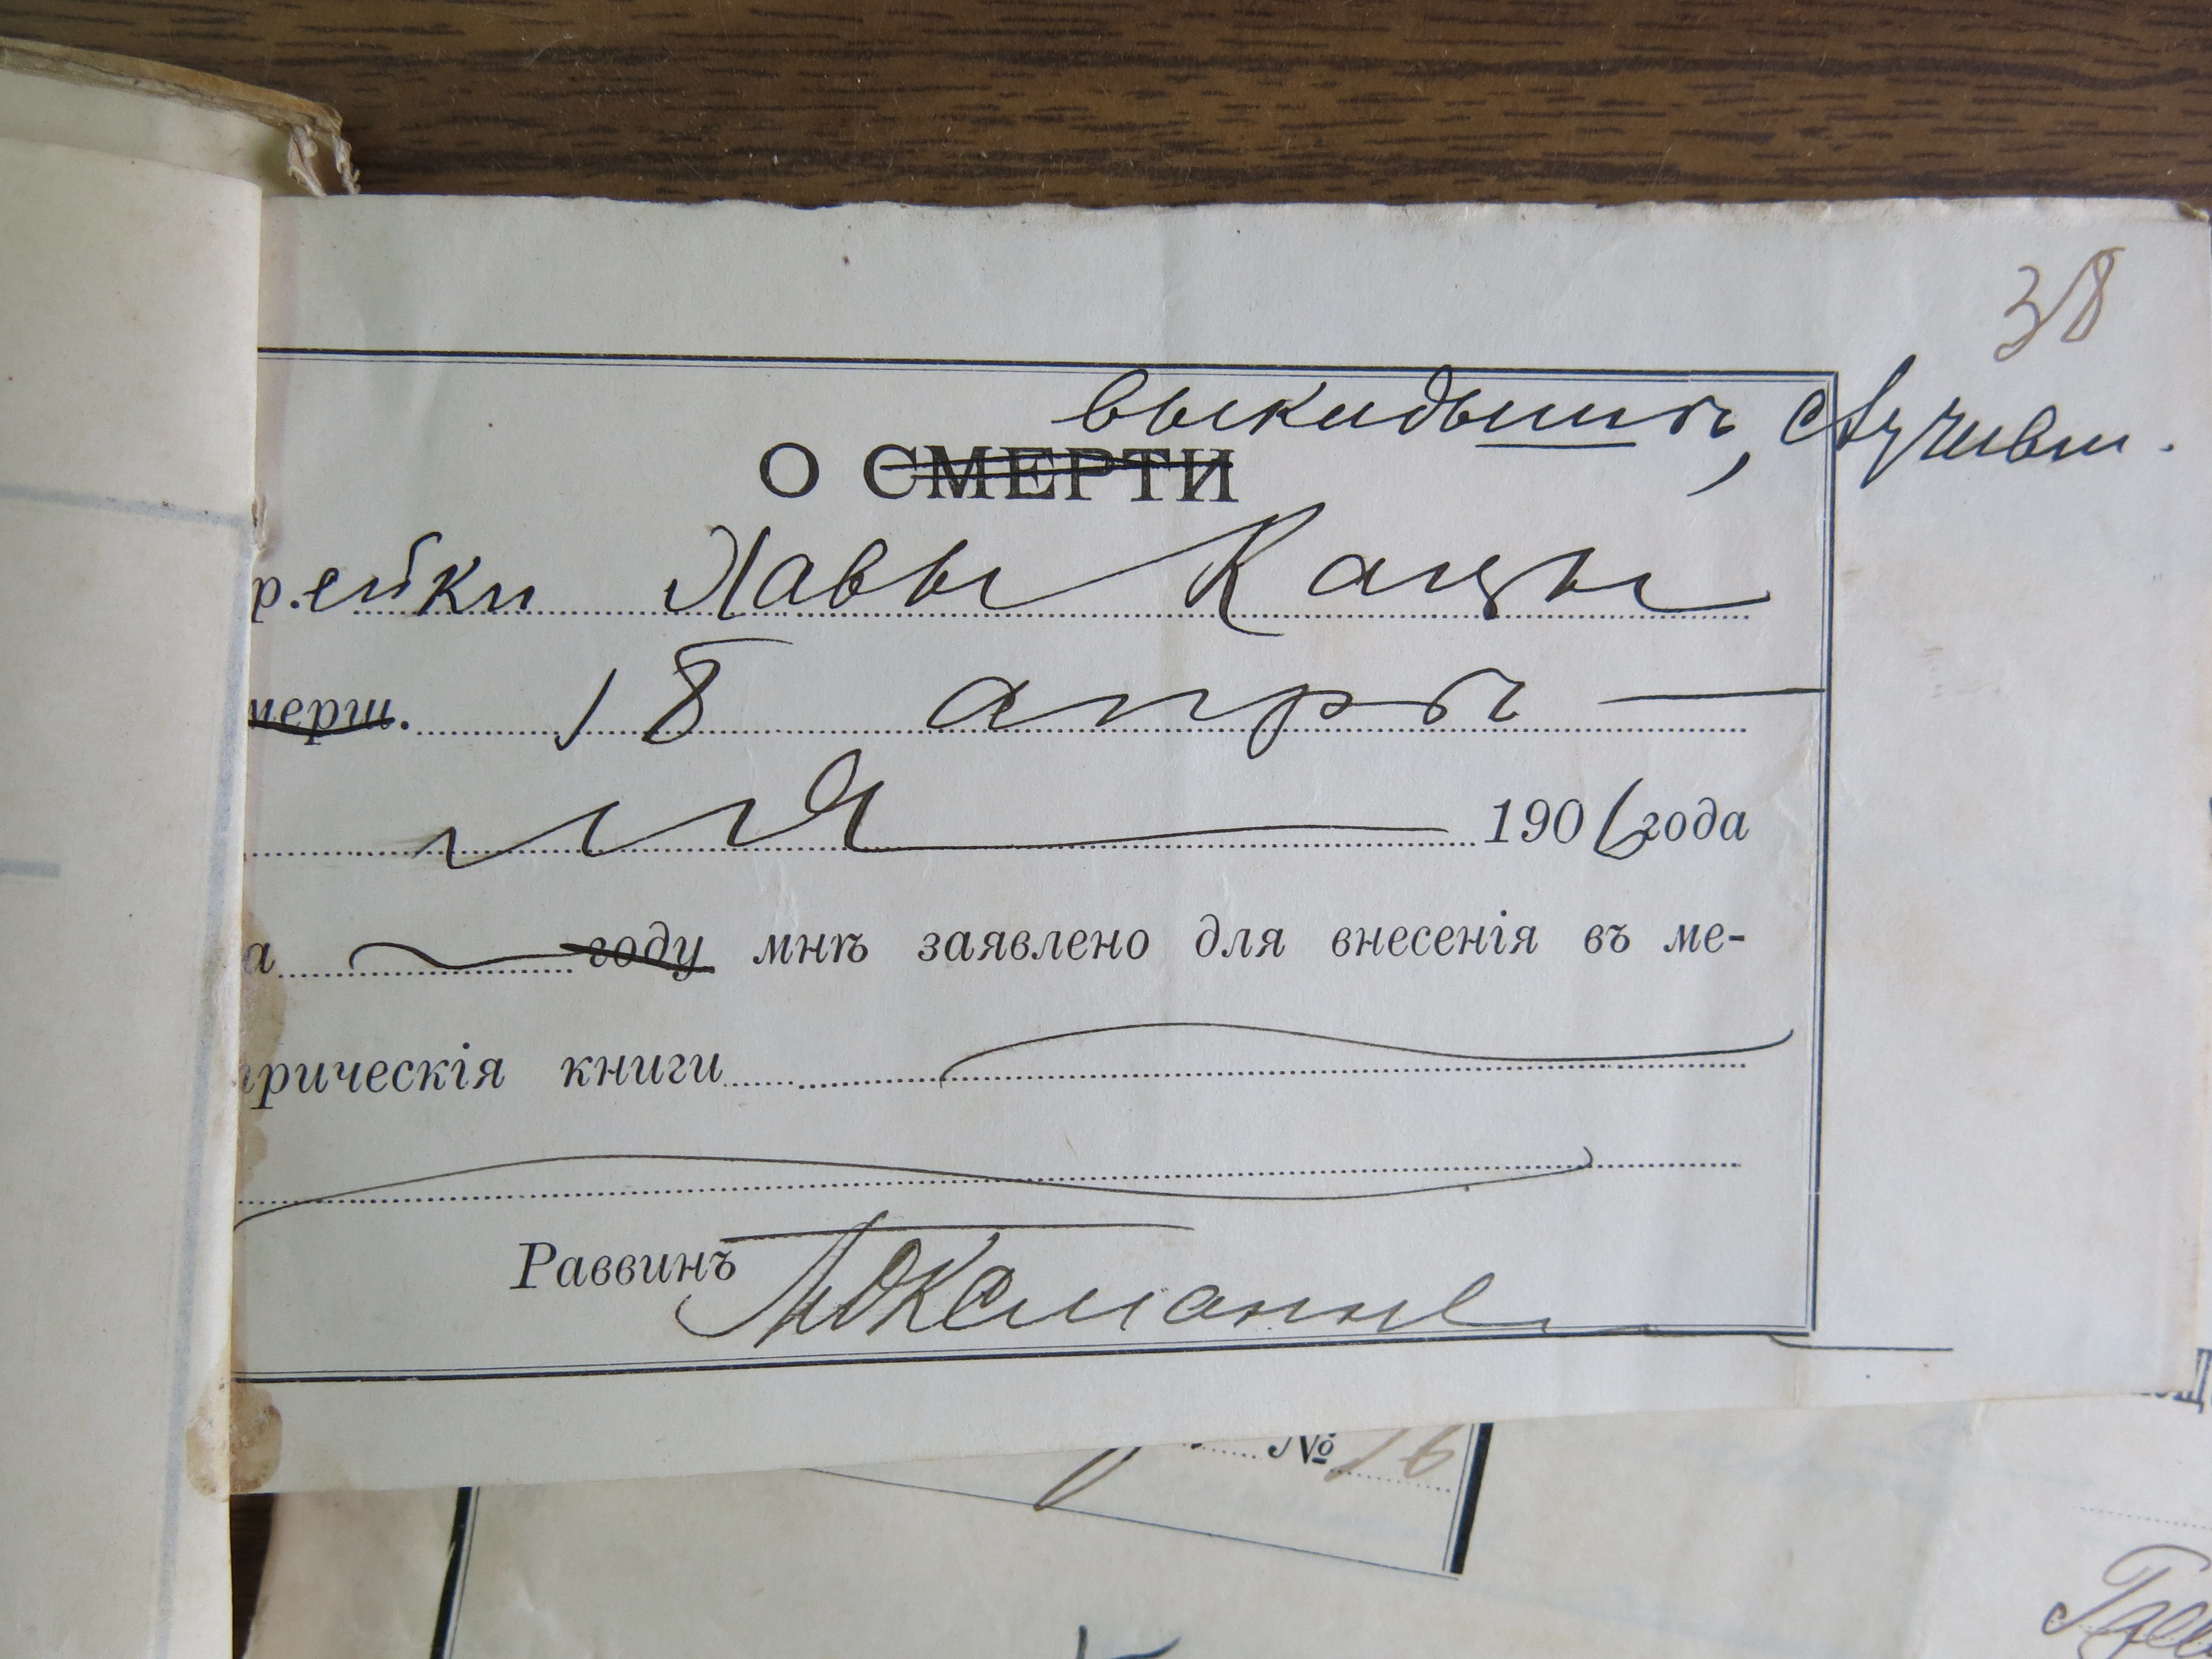 38
выкидышѣ, случивш.
О СМЕРТИ
вр.ейки Хавы Кацы
мерш. 18 апрѣ—
ля 1906 года
а году мнѣ заявлено для внесенія въ ме-
рическія книги
Раввинъ
№ 16